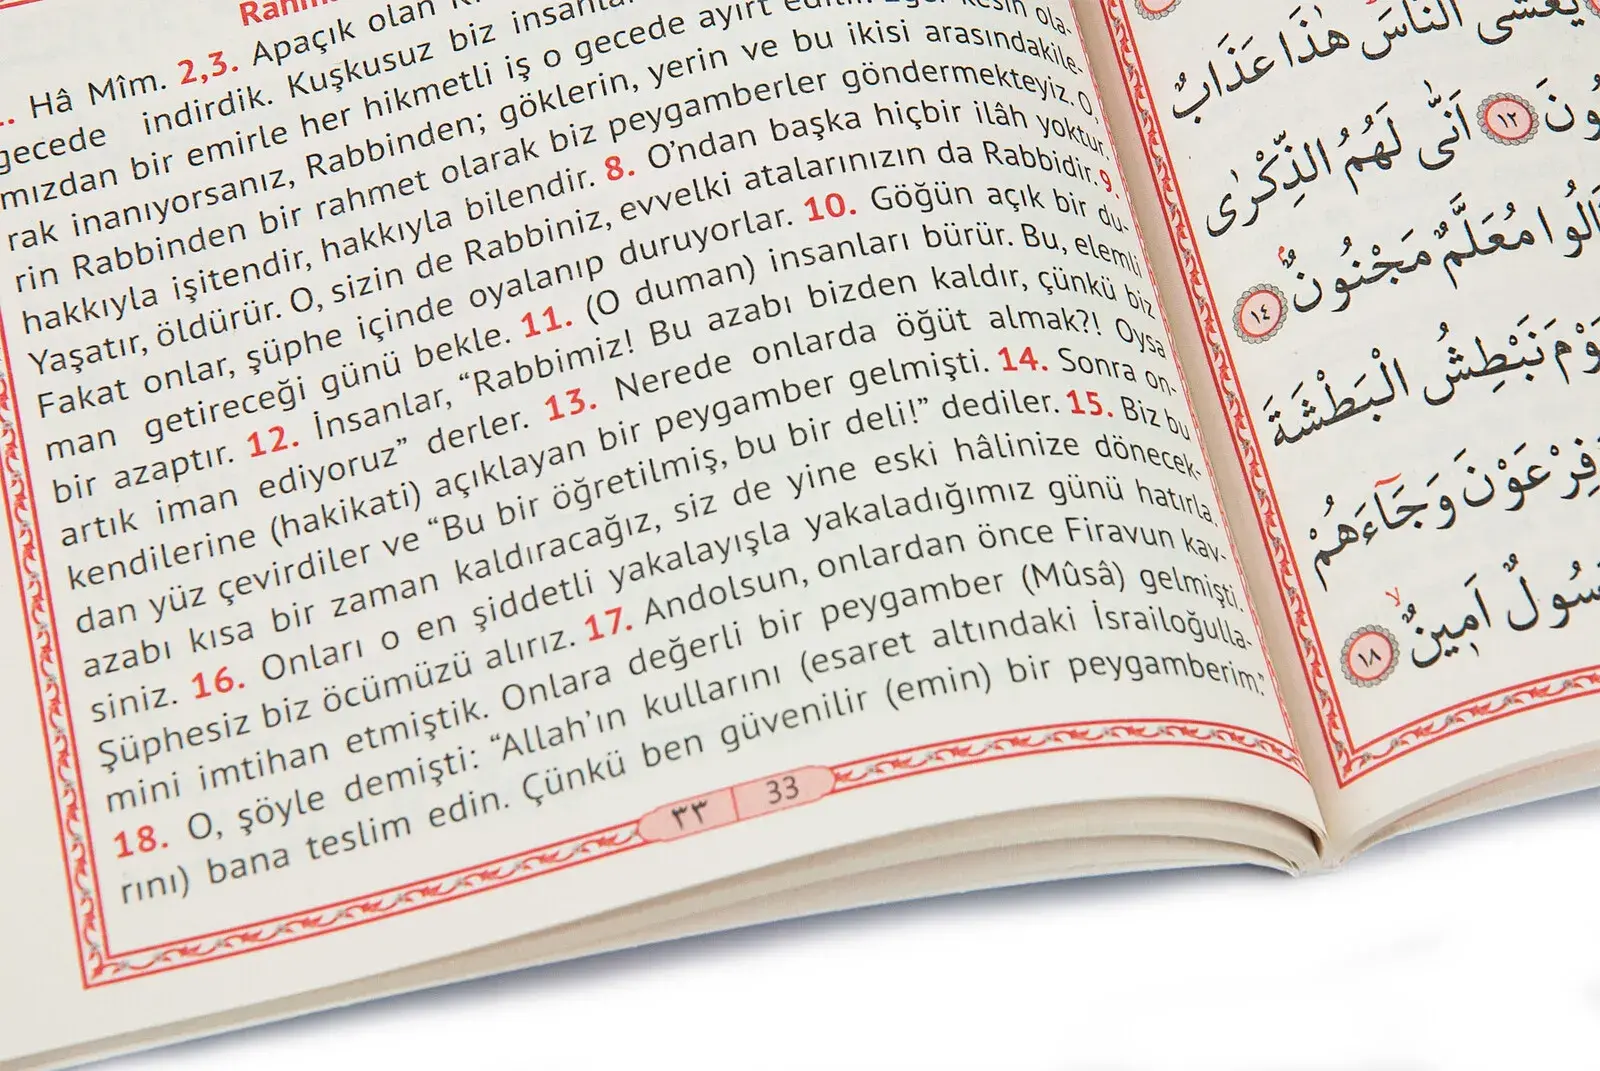 Hâ Mîm. 2,3. Apaçık olan
gecede indirdik. Kuşkusuz biz
mızdan bir emirle her hikmetli iş o gecede ayırt kesin ola-
rak inanıyorsanız, Rabbinden; göklerin, yerin ve bu ikisi arasındakile-
rin Rabbinden bir rahmet olarak biz peygamberler göndermekteyiz. O,
hakkıyla işitendir, hakkıyla bilendir. 8. O’ndan başka hiçbir ilâh yoktur.
Yaşatır, öldürür. O, sizin de Rabbiniz, evvelki atalarınızın da Rabbidir. 9.
Fakat onlar, şüphe içinde oyalanıp duruyorlar. 10. Göğün açık bir du-
man getireceği günü bekle. 11. (O duman) insanları bürür. Bu, elemli
bir azaptır. 12. İnsanlar, “Rabbimiz! Bu azabı bizden kaldır, çünkü biz
artık iman ediyoruz” derler. 13. Nerede onlarda öğüt almak?! Oysa
kendilerine (hakikati) açıklayan bir peygamber gelmişti. 14. Sonra on-
dan yüz çevirdiler ve “Bu bir öğretilmiş, bu bir deli!” dediler. 15. Biz bu
azabı kısa bir zaman kaldıracağız, siz de yine eski hâlinize dönecek-
siniz. 16. Onları o en şiddetli yakalayışla yakaladığımız günü hatırla.
Şüphesiz biz öcümüzü alırız. 17. Andolsun, onlardan önce Firavun kav-
mini imtihan etmiştik. Onlara değerli bir peygamber (Mûsâ) gelmişti.
18. O, şöyle demişti: “Allah’ın kullarını (esaret altındaki İsrailoğulla-
rını) bana teslim edin. Çünkü ben güvenilir (emin) bir peygamberim.”
٣٣ 33
النَّاسَ هٰذَا عَذَابٌ
١٢ اَنّٰى لَهُمُ الذِّكْرٰى
مُعَلَّمٌ مَجْنُونٌ ١٤
نَبْطِشُ الْبَطْشَةَ
فِرْعَوْنَ وَجَٓاءَهُمْ
اَم۪ينٌ ١٨